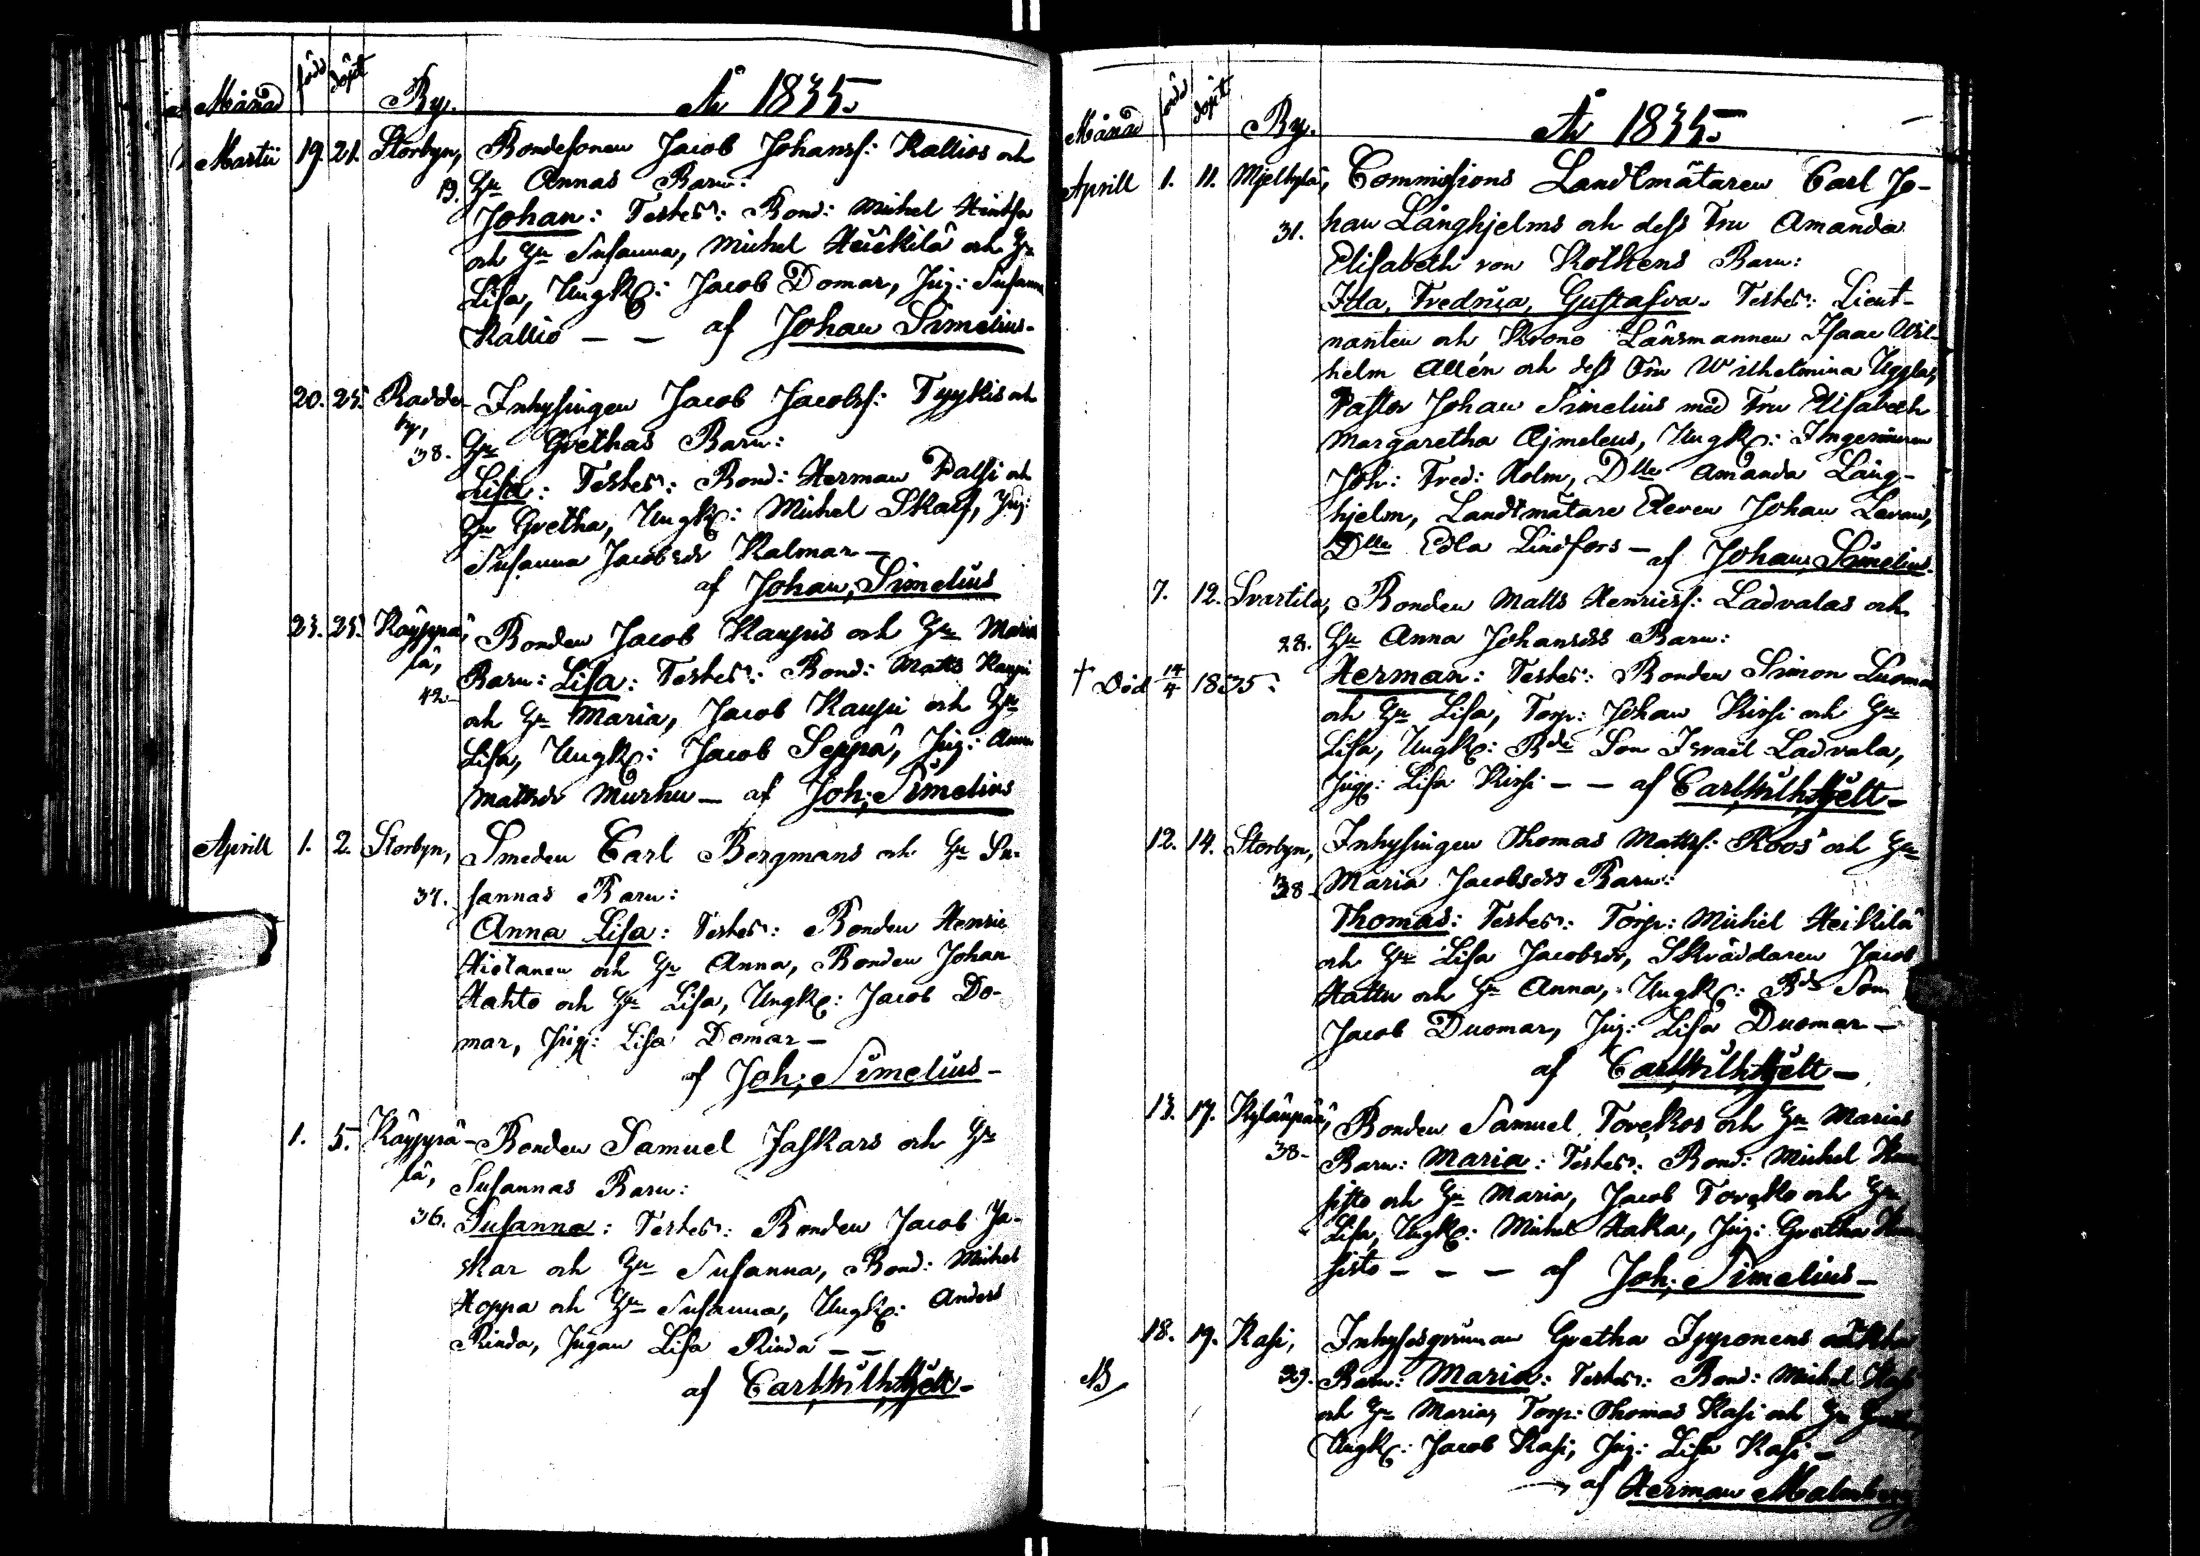 Månad född döpt By. År 1835.
Martii 19. 21. Storbyn, Bondesonen Jacob Johanss: Kallios och
19. Hu Annas Barn:
Johan: Testes: Bond: Michel Hintsa
och Hu Susanna, Michel Heickilä och Hu
Lisa, Ungk: Jacob Domar, Pig: Susanna
Kallio — — af Johan Simelius.
20. 25. Radde- Inhysingen Jacob Jacobss: Tyykis och
by,
38. Hu Grethas Barn:
Lisa: Testes: Bond: Herman Palsi och
Hu Gretha, Ungk: Michel Skalf, Pig:
Susanna Jacobsdr Kalmar —
af Johan Simelius
23. 25. Käyppä- Bonden Jacob Kaupis och Hu Maria
lä, Barn: Lisa: Testes: Bond: Matts Kaupi
42. och Hu Maria, Jacob Kaupi och Hu
Lisa, Ungk: Jacob Seppä, Pig: Anna
Mattsdr Murhu — af Joh: Simelius
Aprill 1. 2. Storbyn, Smeden Carl Bergmans och Hu Su-
37. sannas Barn:
Anna Lisa: Testes: Bonden Henric
Hietanen och Hu Anna, Bonden Johan
Hahto och Hu Lisa, Ungk: Jacob Do-
mar, Pig: Lisa Domar —
af Joh: Simelius —
1. 5. Käyppä- Bonden Samuel Jaskars och Hu
lä, Susannas Barn:
36. Susanna: Testes: Bonden Jacob Ja-
skar och Hu Susanna, Bond: Michel
Hoppa och Hu Susanna, Ungk: Anders
Rinda, Pigan Lisa Rinda — —
af Carl Wilh: Hjelt —
Månad född döpt By. År 1835.
Aprill 1. 11. Commissions Landtmätaren Carl Jo-
31. han Långhjelms och dess Fru Amanda
Elisabeth von Kothens Barn:
Ida, Fredrica, Gustafva. Testes: Lieut-
nanten och Krono Länsmannen Isaac Wil-
helm Allén och dess Fru Wilhelmina Uggla,
Pastor Johan Simelius med Fru Elisabeth
Margaretha Ajmeleus, Ungk: Ingenieuren
Joh: Fred: Holm, Dlle Amanda Lång-
hjelm, Landtmätare Eleven Johan Lavan,
Dlle Edla Lindfors — af Johan Simelius.
7. 12. Svartila, Bonden Matts Henricss: Ladvalas och
28. Hu Anna Johansdrs Barn:
† Död 14/4 1835. Herman: Testes: Bonden Simon Luoma
och Hu Lisa, Torp: Johan Kirsi och Hu
Lisa, Ungk: Bde Son Israel Ladvala,
Pig: Lisa Kirsi — — af Carl Wilh: Hjelt —
12. 14. Storbyn, Inhysingen Thomas Mattss: Koos och Hu
38. Maria Jacobsdrs Barn:
Thomas: Testes: Torp: Michel Heikilä
och Hu Lisa Jacobsdr, Skräddaren Jacob
Hattu och Hu Anna, Ungk: Bde Son
Jacob Duomar, Pig: Lisa Duomar —
af Carl Wilh: Hjelt —
13. 17. Kylänpää, Bonden Samuel Toveckos och Hu Marias
38. Barn: Maria: Testes: Bond: Michel
sisto och Hu Maria, Jacob Tovecko och Hu
Lisa, Ungk: Michel Haka, Pig: Gretha
sisto — — — af Joh: Simelius —
18. 19. Kasi, Inhysesqvinnan Gretha Pyyronens oäkta
NB 39. Barn: Maria: Testes: Bond: Michel
och Hu Maria, Torp: Thomas Kasi och Hu
Ungk: Jacob Kasi, Pig: Lisa Kasi —
af Herman Malmberg